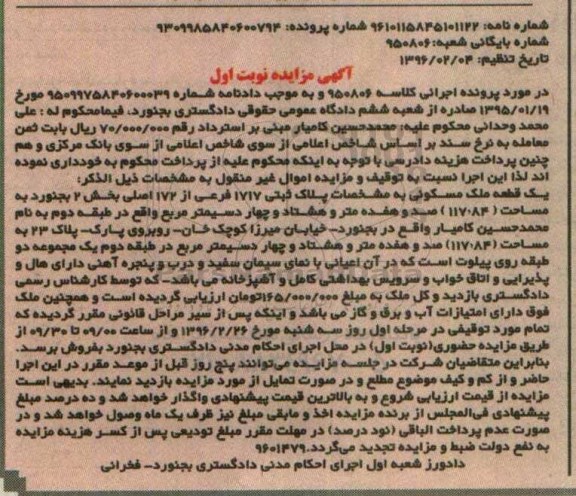 شماره نامه: ۹۶۱۰۱۱۵۸۴۵۱۰۱۱۲۲ شماره پرونده: ۹۳۰۹۹۸۵۸۴۰۶۰۰۷۹۴
شماره بایگانی شعبه: ۹۵۰۸۰۶
تاریخ تنظیم: ۱۳۹۶/۰۲/۰۴
آگهی مزایده نوبت اول
در مورد پرونده اجرائی کلاسه ۹۵۰۸۰۶ و به موجب دادنامه شماره ۹۵۰۹۹۷۵۸۴۰۶۰۰۰۳۹ مورخ
۱۳۹۵/۰۱/۱۹ صادره از شعبه ششم دادگاه عمومی حقوقی دادگستری بجنورد، فیمامحکوم له : علی
محمد وحدانی محکوم علیه: محمدحسین کامیار مبنی بر استرداد رقم ۷۰/۰۰۰/۰۰۰ ریال بابت ثمن
معامله به نرخ سند بر اساس شاخص اعلامی از سوی شاخص اعلامی از سوی بانک مرکزی و هم
چنین پرداخت هزینه دادرسی با توجه به اینکه محکوم علیه از پرداخت محکوم به خودداری نموده
اند لذا این اجرا نسبت به توقیف و مزایده اموال غیر منقول به مشخصات ذیل الذکر:
یک قطعه ملک مسکونی به مشخصات پلاک ثبتی ۱۷۱۷ فرعی از ۱۷۲ اصلی بخش ۲ بجنورد به
مساحت ( ۱۱۷:۸۴ ) صد و هفده متر و هشتاد و چهار دسیمتر مربع واقع در طبقه دوم به نام
محمدحسین کامیار واقع در بجنورد- خیابان میرزا کوچک خان- روبروی پارک- پلاک ۲۳ به
مساحت (۱۱۷:۸۴) صد و هفده متر و هشتاد و چهار دسیمتر مربع در طبقه دوم یک مجموعه دو
طبقه روی پیلوت است که در آن اعیانی با نمای سیمان سفید و درب و پنجره آهنی دارای هال و
پذیرایی و اتاق خواب و سرویس بهداشتی کامل و آشپزخانه می باشد- که توسط کارشناس رسمی
دادگستری بازدید و کل ملک به مبلغ ۱۶۵/۰۰۰/۰۰۰تومان ارزیابی گردیده است و همچنین ملک
فوق دارای امتیازات آب و برق و گاز می باشد و اینکه پس از سیر مراحل قانونی مقرر گردیده که
تمام مورد توقیفی در مرحله اول روز سه شنبه مورخ ۱۳۹۶/۲/۲۶ و از ساعت ۰۹/۰۰ تا ۰۹/۳۰ از
طریق مزایده حضوری(نوبت اول) در محل اجرای احکام مدنی دادگستری بجنورد بفروش برسد.
بنابراین متقاضیان شرکت در جلسه مزایده می‌توانند پنج روز قبل از موعد مقرر در این اجرا
حاضر و از کم و کیف موضوع مطلع و در صورت تمایل از مورد مزایده بازدید نمایند. بدیهی است
مزایده از قیمت ارزیابی شروع و به بالاترین قیمت پیشنهادی واگذار خواهد شد و ده درصد مبلغ
پیشنهادی فی‌المجلس از برنده مزایده اخذ و مابقی مبلغ نیز ظرف یک ماه وصول خواهد شد و در
صورت عدم پرداخت الباقی (نود درصد) در مهلت مقرر مبلغ تودیعی پس از کسر هزینه مزایده
به نفع دولت ضبط و مزایده تجدید می‌گردد.۹۶۰۱۴۷۹
دادورز شعبه اول اجرای احکام مدنی دادگستری بجنورد- فخرانی